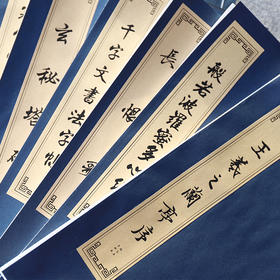 王羲之蘭亭序
般若波羅蜜多心
長恨
千字文書法字帖
玄秘塔